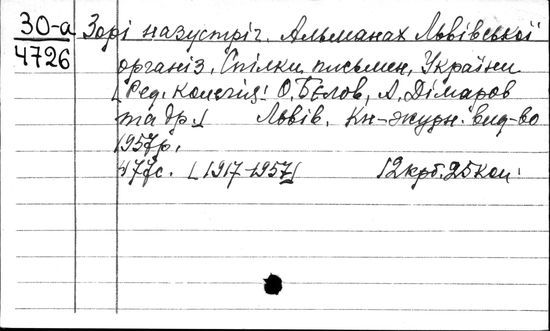 30-а Зорі назустріч. Альманах Львівської
4726 організ. Спілки письмен. України
[Ред. колегія: О. Бєлов, А. Дімаров
та др.] Львів. Кн-журн. вид-во
1957р.
477с. [1917-1957] 12крб.25коп.